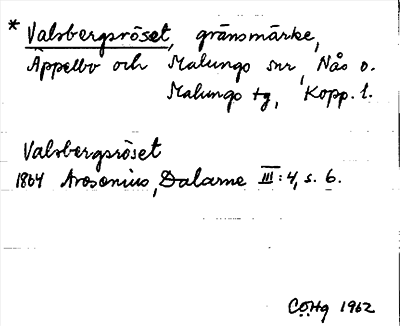 * Valsbergsröset, gränsmärke,
Äppelbo och Malungs snr, Nås o.
Malungs tg, Kopp. l.
Valsbergsröset
1864 Arosenius, Dalarne III:4, s. 6.
CÖHg 1962